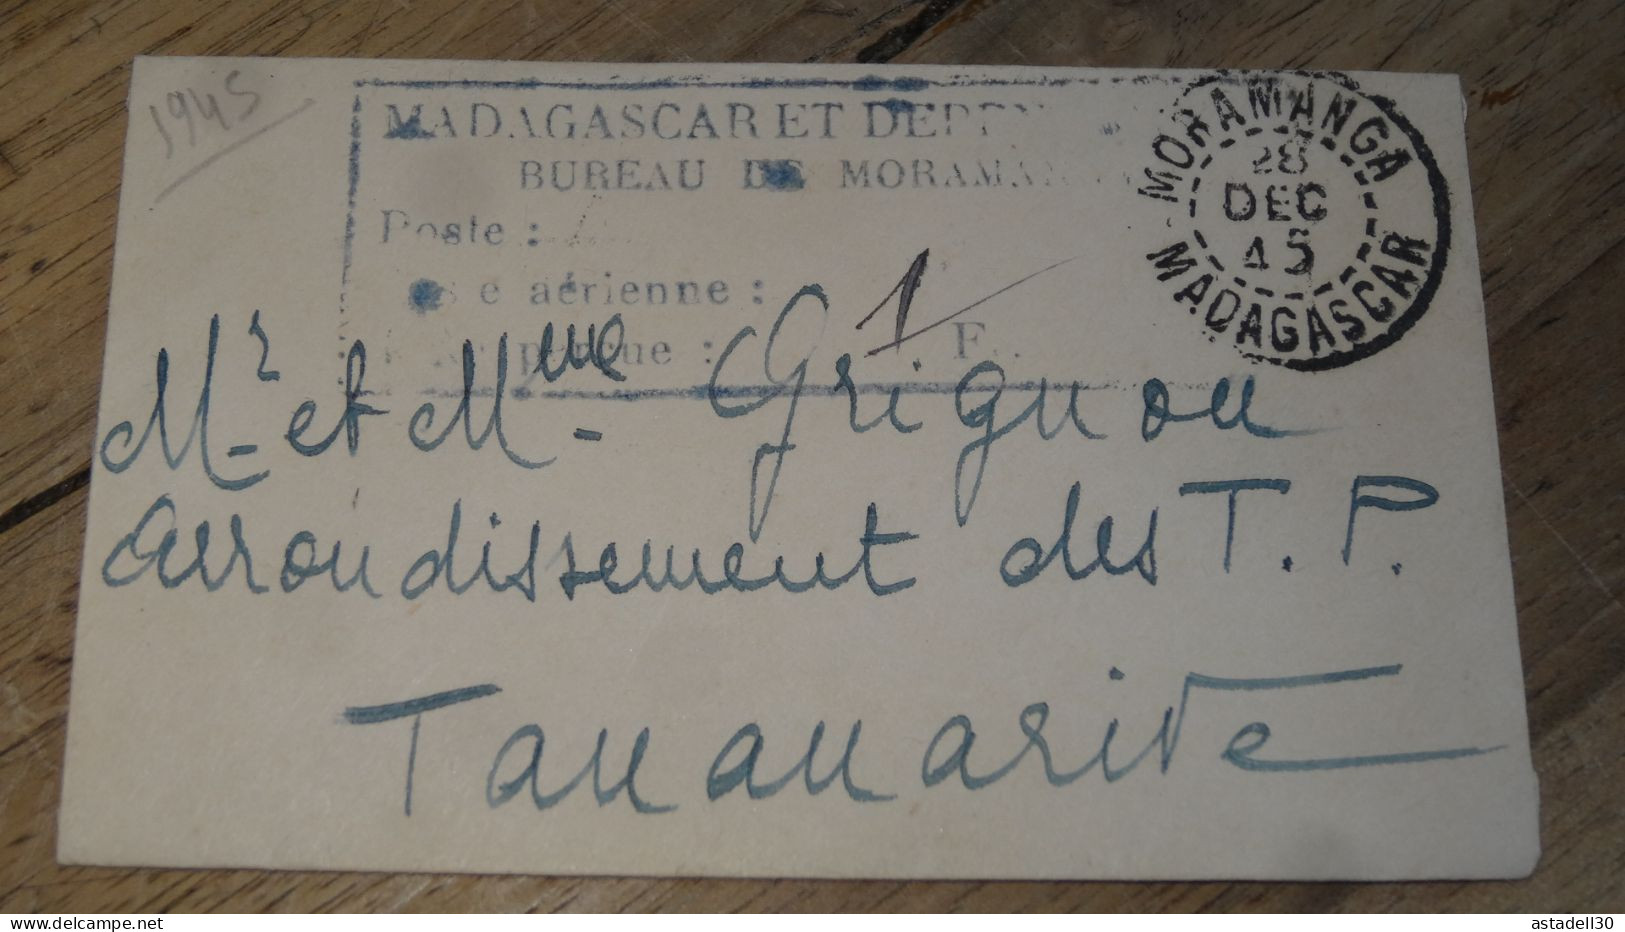 1945
MADAGASCAR ET DEPEN
BUREAU DE MORAMANGA
Poste :
aérienne :
perçue : 1 F.
MORAMANGA
28
DEC
45
MADAGASCAR
Mr et Mme Grignon
Arrondissement des T. P.
Tananarive
delcampe.net
astadell30